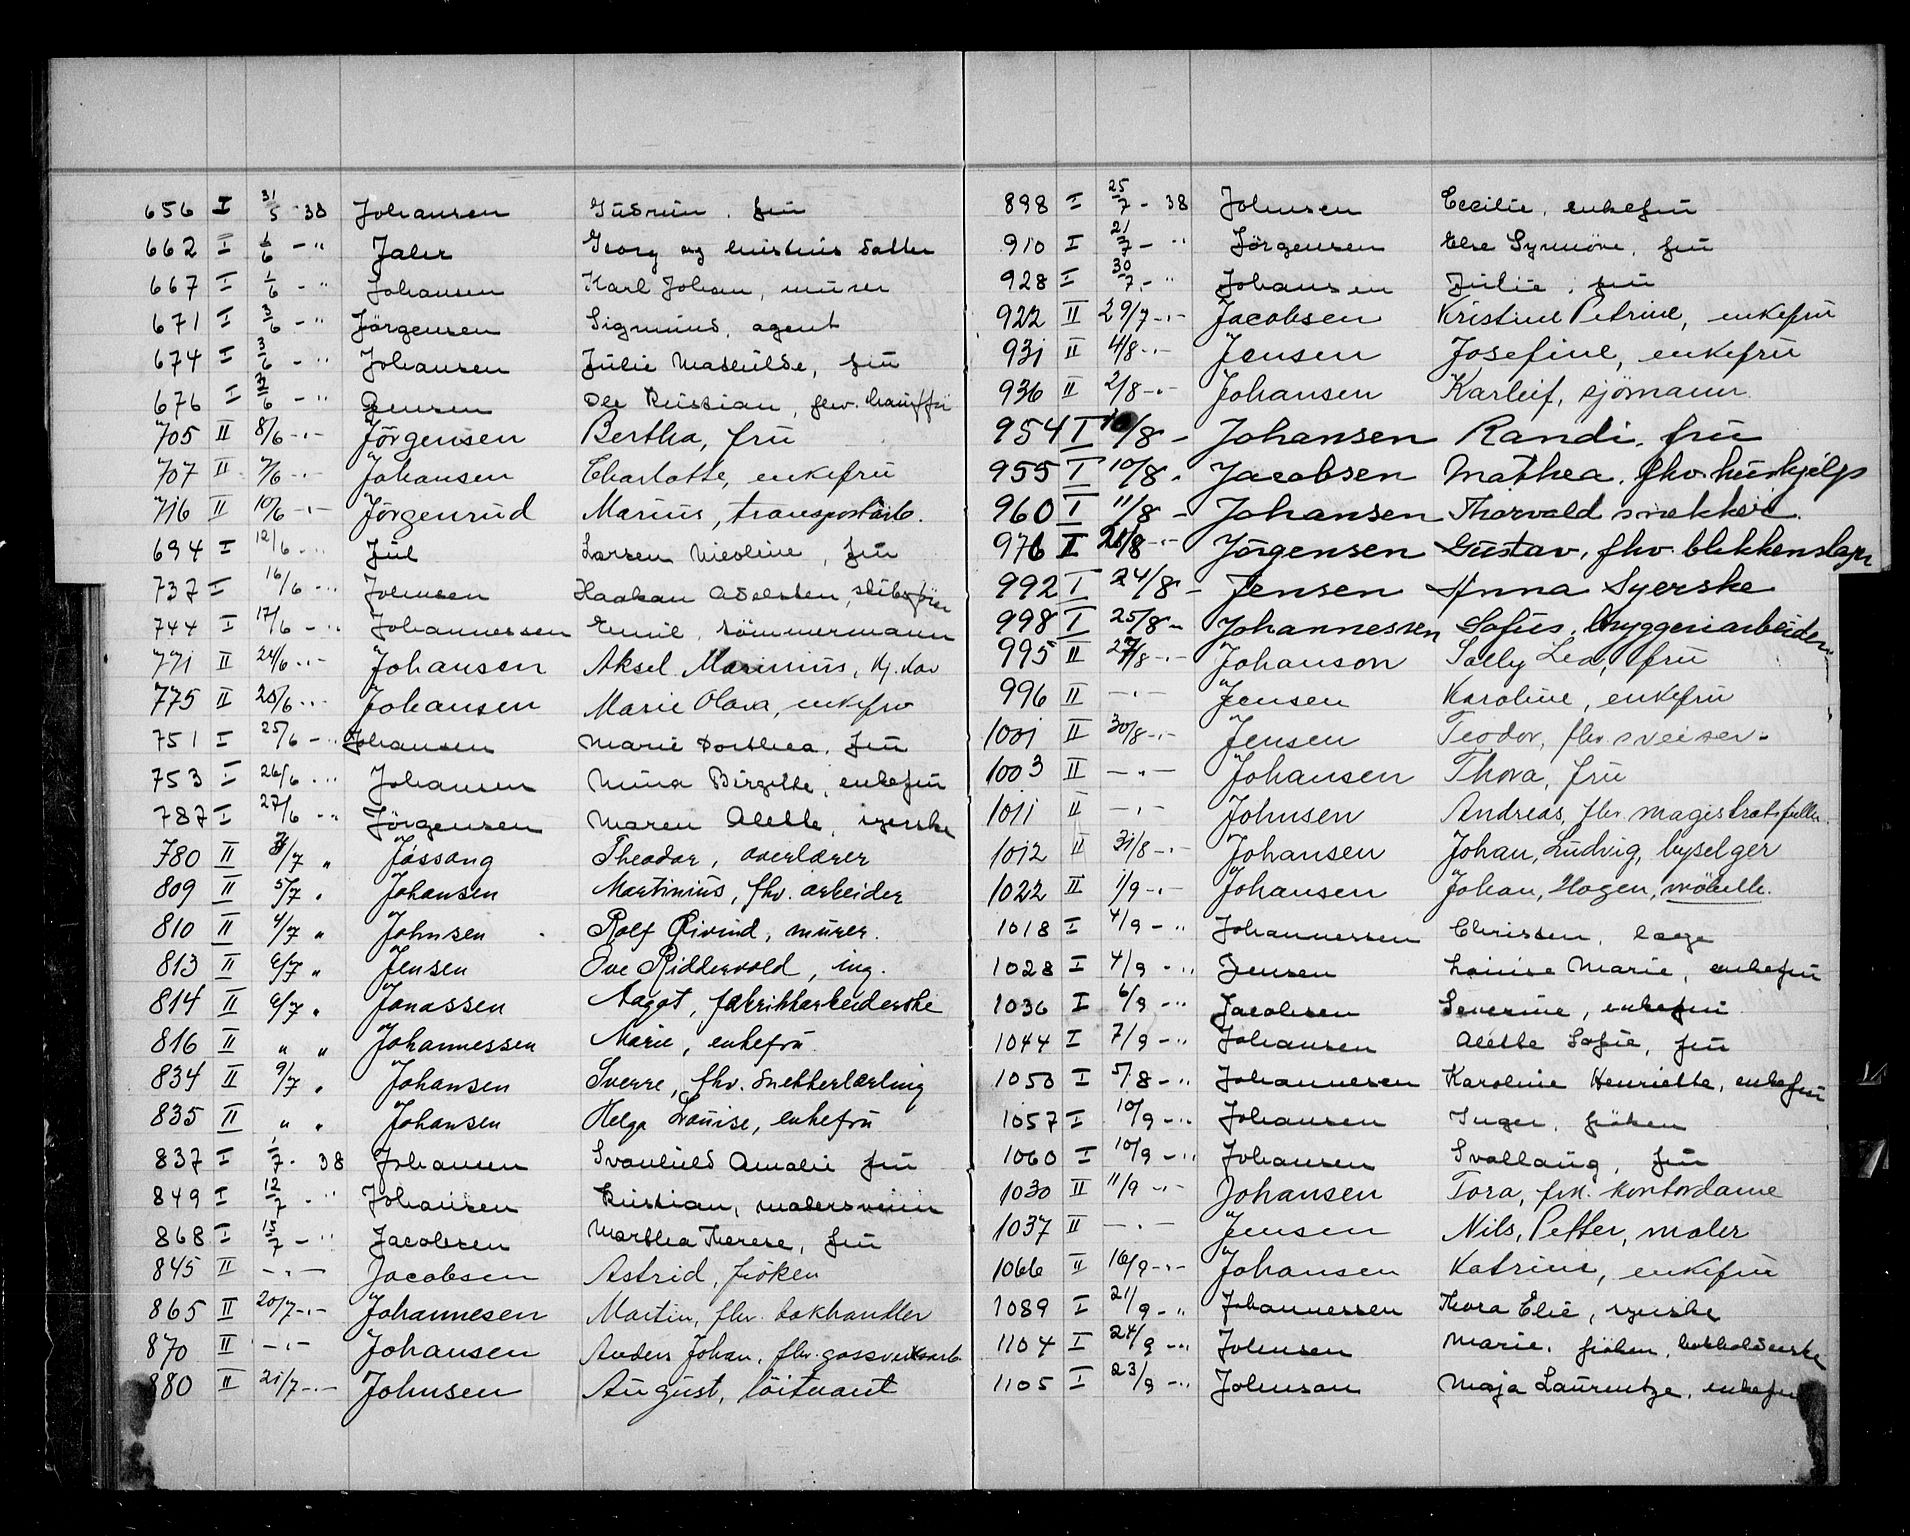 656 I 31/5 - 38 Johansen Gudrun, fru
662 I 1/6 - " Jahr Georg og hustrus datter
667 I 1/6 - " Johansen Karl Johan, murer
671 I 3/6 - " Jörgensen Sigmund, agent
674 I 3/6 - " Johansen Julie Mathilde, fru
676 I /6 - " Jensen Ole Kristian, fhv.
705 II 8/6 -"- Jörgensen Bertha, fru
707 II 7/6 -"- Johansen Charlotte, enkefru
716 II 10/6 -"- Jörgenrud Marius, transportarb.
694 I 12/6 - " Jul Larsen Nicoline, fru
737 I 16/6 - " Johnsen Haakon Adelsten,
744 I 17/6 - " Johannessen Emil, tömmermann
771 II 24/6 -"- Johansen Aksel Marinius,
775 II 25/6 -"- Johansen Marie Olava, enkefru
751 I 25/6 - " Johansen Marie Dorthea, fru
753 I 26/6 - " Johansen Mina Birgitte, enkefru
787 I 27/6 - " Jörgensen Maren Alette, syerske
780 II /7 " Jössang Theodor, overlærer
809 II 5/7 " Johansen Martinius, fhv. arbeider
810 II 4/7 " Johnsen Rolf Eivind, murer.
813 II 6/7 " Jensen Ove Riddervold, ing.
814 II 6/7 " Jonassen Aagot, fabrikkarbeiderske
816 II " " Johannessen Marie, enkefru
834 II 9/7 " Johansen Sverre, fhv. snekkerlærling
835 II " " Johansen Helga Louise, enkefru
837 I 1/7 - 38 Johansen Svanhild Amalie fru
849 I 12/7 - " Johansen Kristian, malersvenn
868 I 13/7 - " Jacobsen Marthea Therese, fru
845 II -"- Jacobsen Astrid, fröken
865 II 20/7 -"- Johannesen Martin, fhv. bokhandler
870 II -"- Johansen Anders Johan, fhv. gassverksarb.
880 II 21/7 -"- Johnsen August, löitnant
898 I 25/7 - 38 Johnsen Cecilie, enkefru
910 I 21/7 - " Jörgensen Else Synnöve, fru
928 I 30/7 - " Johansen Julie, fru
922 II 29/7 -"- Jacobsen Kristine Petrine, enkefru
931 II 4/8 -"- Jensen Josefine, enkefru
936 II 2/8 -"- Johansen Karleif, sjömann
954 I 10/8 - Johansen Randi, fru
955 I 10/8 - Jacobsen Mathea, fhv. hushjelp
960 I 11/8 - Johansen Thorvald snekker
976 I /8 -"- Jörgensen Gustav, fhv. blikkenslager
992 I 24/8 - Jensen Anna Syerske
998 I 25/8 - Johannessen Sofus, bryggeriarbeider
995 II 27/8 -"- Johanson Sally Lea, fru
996 II -"- Jensen Karoline, enkefru
1001 II 30/8 -"- Jensen Teodor, fhv. sveiser.
1003 II -"- Johansen Thora, fru
1011 II -"- Johnsen Andreas, fhv. magistratsfullm.
1012 II 31/8 -"- Johansen Johan, Ludvig, byselger
1022 II 1/9 -"- Johansen Johan, Hagen,
1018 I 4/9 - " Johannessen Chrissen, læge
1028 I 4/9 - " Jensen Louise Marie, enkefru
1036 I 6/9 - " Jacobsen Severine, enkefru
1044 I 7/9 - " Johansen Alette Sofie, fru
1050 I 5/8 - " Johannesen Karoline Henriette, enkefru
1057 I 10/9 - " Johansen Inger, fröken
1060 I 10/9 - " Johansen Svallaug, fru
1030 II 11/9 -"- Johansen Tora, frk. kontordame
1037 II -"- Jensen Nils, Petter, maler
1066 II 16/9 -"- Johansen Katrine, enkefru
1089 I 21/9 - " Johannessen Thora Elie, syerske
1104 I 24/9 - " Johnsen Marie, fröken, bokholderske
1105 I 23/9 - " Johnson Maja Laurentze, enkefru